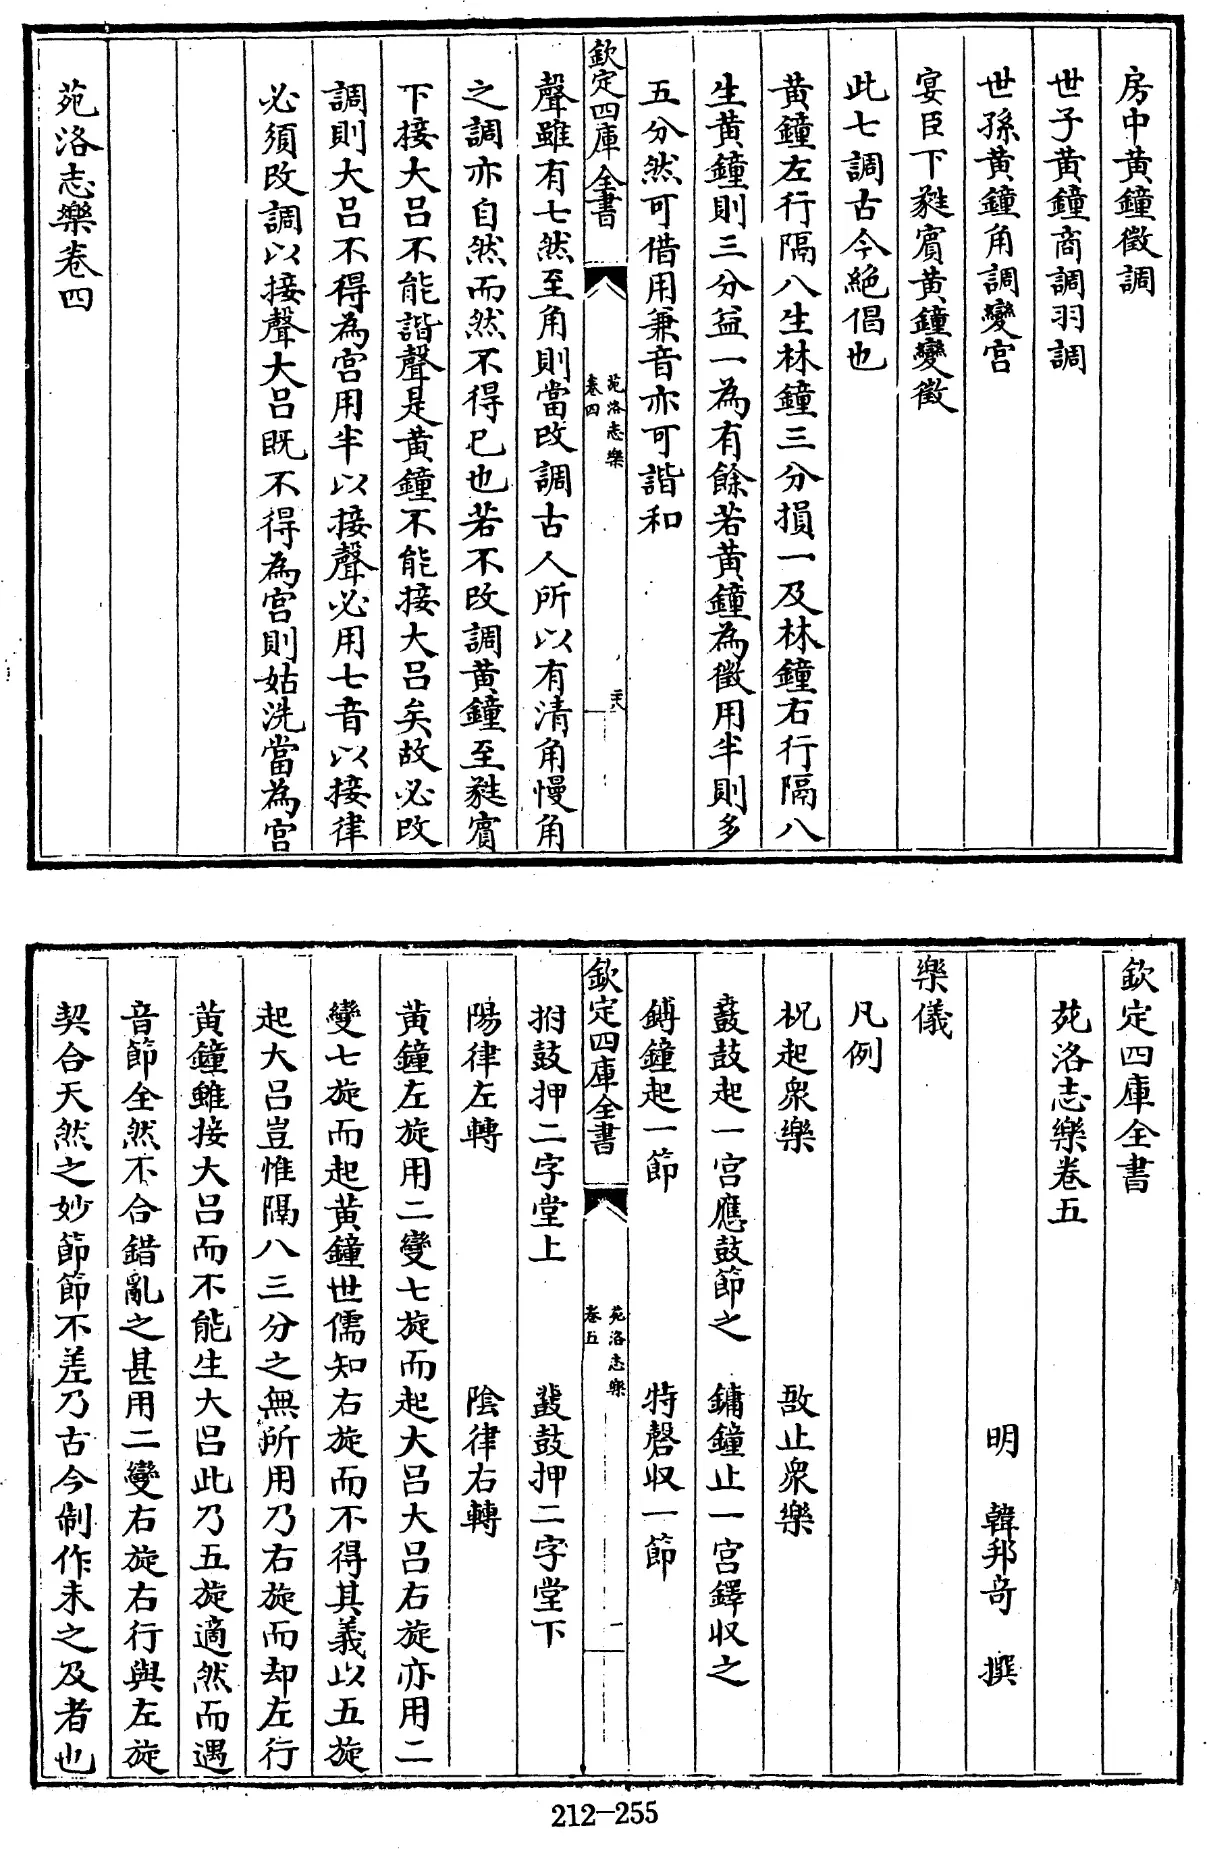 房中黃鐘徵調
世子黃鐘商調羽調
世孫黃鐘角調變宮
宴臣下蕤賓黃鐘變徵
此七調古今絶倡也
黃鐘左行隔八生林鐘三分損一及林鐘右行隔八
生黃鐘則三分益一為有餘若黃鐘為徵用半則多
五分然可借用兼音亦可諧和
欽定四庫全書
苑洛志樂
卷四
二六
聲雖有七然至角則當改調古人所以有清角慢角
之調亦自然而然不得已也若不改調黃鐘至蕤賓
下接大呂不能諧聲是黃鐘不能接大呂矣故必改
調則大呂不得為宮用半以接聲必用七音以接律
必須改調以接聲大呂既不得為宮則姑洗當為宮
苑洛志樂卷四
欽定四庫全書
苑洛志樂卷五
明 韓邦奇 撰
樂儀
凡例
柷起衆樂 敔止衆樂
鼖鼓起一宮應鼓節之 鏞鐘止一宮鐸收之
鎛鐘起一節 特磬收一節
欽定四庫全書
苑洛志樂
卷五
一
拊鼓押二字堂上 鼗鼓押二字堂下
陽律左轉 陰律右轉
黃鐘左旋用二變七旋而起大呂大呂右旋亦用二
變七旋而起黃鐘世儒知右旋而不得其義以五旋
起大呂豈惟隔八三分之無所用乃右旋而却左行
黃鐘雖接大呂而不能生大呂此乃五旋適然而遇
音節全然不合錯亂之甚用二變右旋右行與左旋
契合天然之妙節節不差乃古今制作未之及者也
212-255